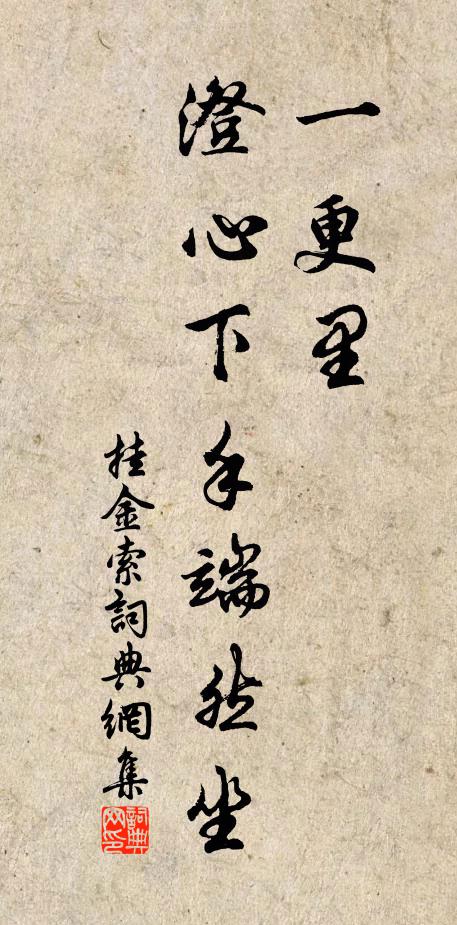 一更里
澄心下手端然坐
挂金索詞典網集
詞典网印